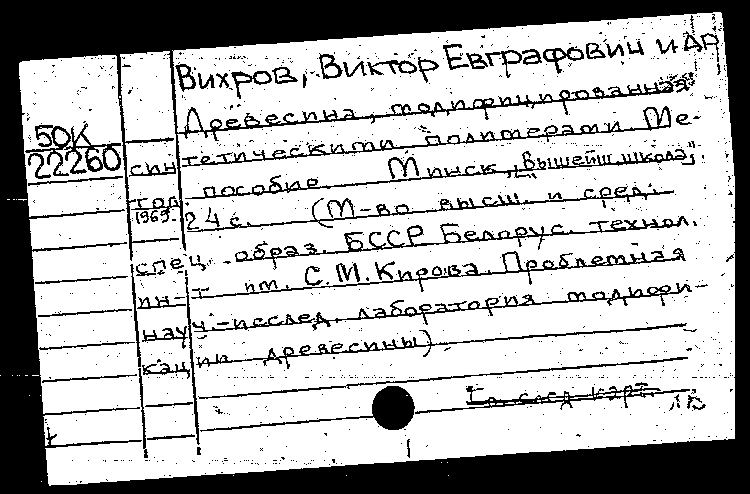 Вихров, Виктор Евграфович и др
Древесина, модифицированная
50К
22260 синтетическими полимерами. Ме-
тод. пособие. Минск, "Вышейш. школа",
1969. 24 с. (М-во высш. и сред.
спец. образ. БССР. Белорус. технол.
ин-т им. С.М. Кирова. Проблемная
науч.-исслед. лаборатория модифи-
кации древесины)
См. след. карт.